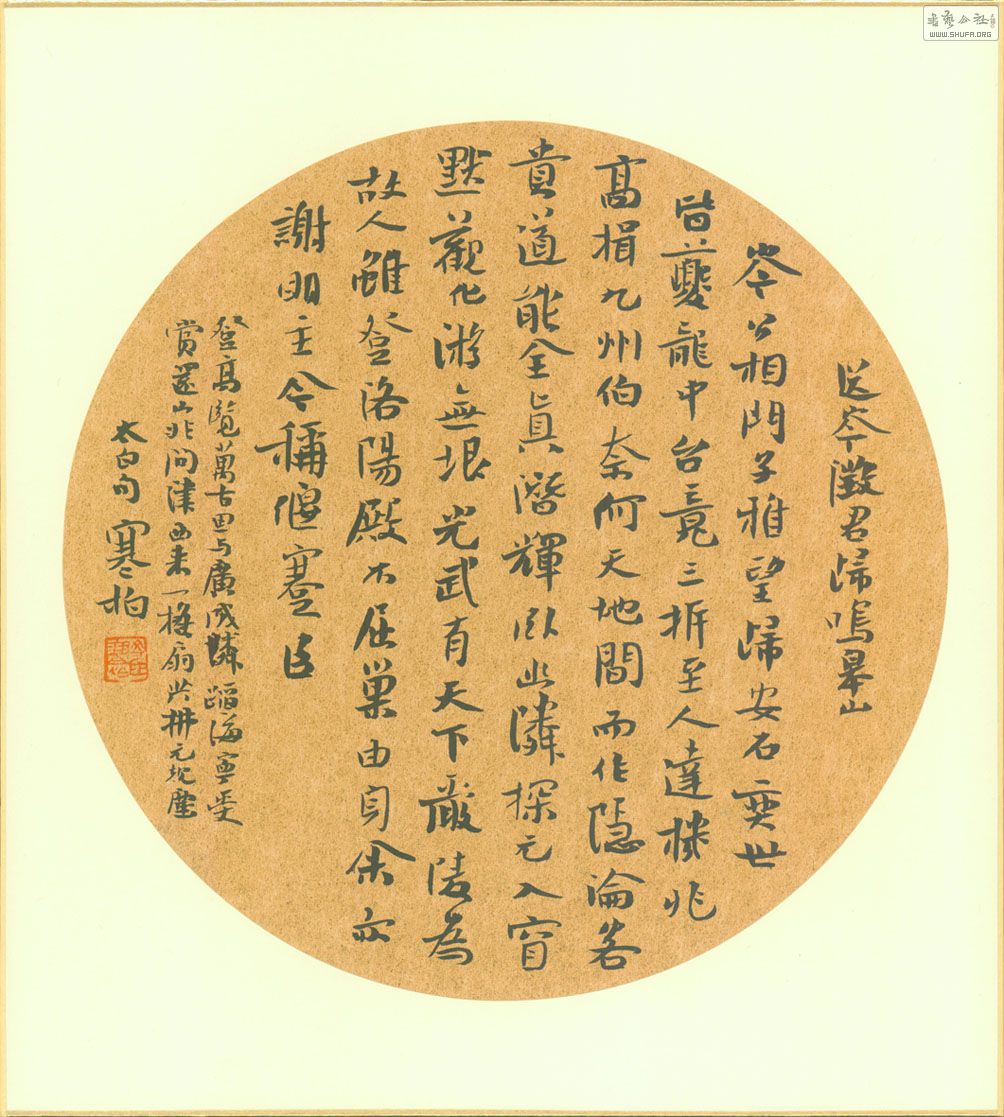 書藝公社
WWW.SHUFA.ORG
送岑澂君歸鳴皋山
岑公相門子雅望歸安石奕世
皆夔龍中台竟三拆至人達機兆
高揖九州伯奈何天地間而作隱淪客
貴道能全真潛輝臥幽隣探元入窅
默觀化游無垠光武有天下嚴陵為
故人雖登洛陽殿不屈巢由身余亦
謝明主今稱偃蹇臣
登高覽萬古思與廣成隣蹈海寧受
賞還山非問津西來一搖扇共拂元規塵
太白句 寒柏